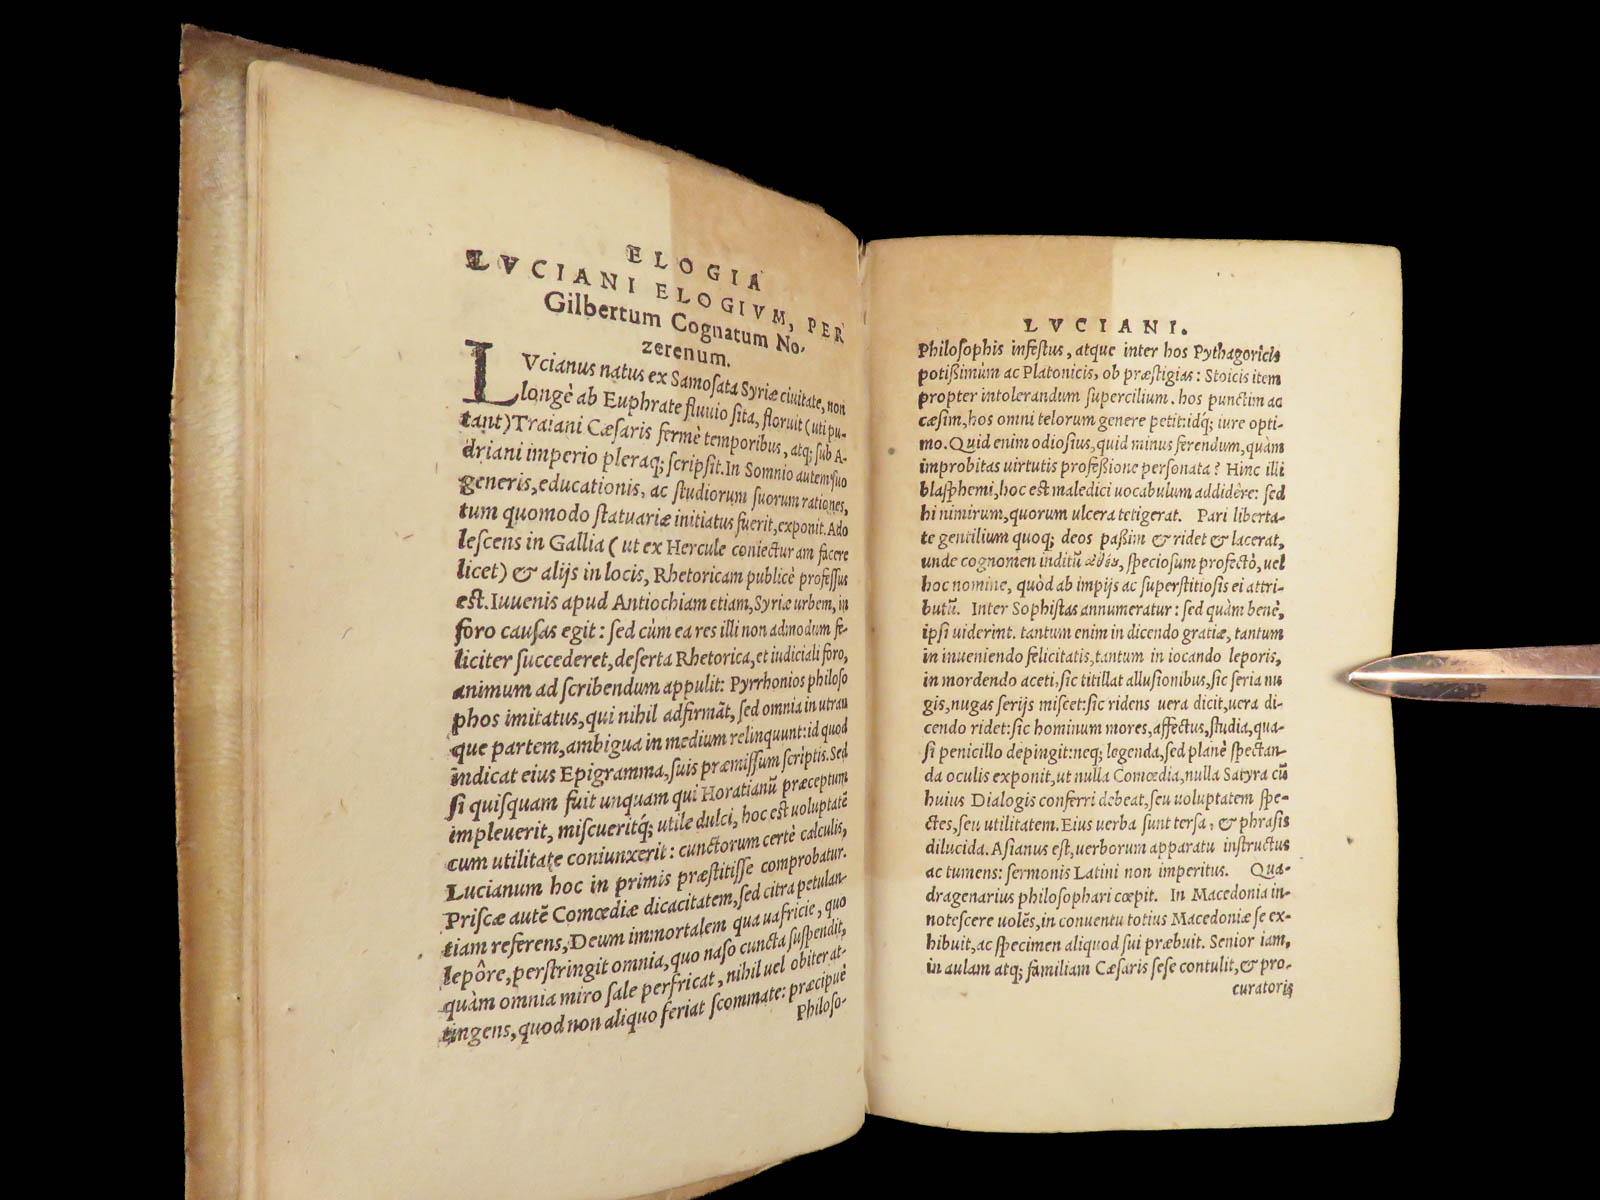 ELOGIA
LVCIANI ELOGIVM, PER
Gilbertum Cognatum No-
zerenum.
LVcianus natus ex Samosata Syriæ ciuitate, non
longè ab Euphrate fluuio sita, floruit (uti pu-
tant) Traiani Cæsaris fermè temporibus, atq; sub A-
driani imperio pleraq; scripsit. In Somnio autem suo
generis, educationis, ac studiorum suorum rationes,
tum quomodo statuariæ initiatus fuerit, exponit. Ado
lescens in Gallia (ut ex Hercule coniecturam facere
licet) & alijs in locis, Rhetoricam publicè professus
est. Iuuenis apud Antiochiam etiam, Syriæ urbem, in
foro causas egit: sed cùm ea res illi non admodum fe-
liciter succederet, deserta Rhetorica, et iudiciali foro,
animum ad scribendum appulit: Pyrrhonios philoso
phos imitatus, qui nihil adfirmāt, sed omnia in utran
que partem, ambigua in medium relinquunt: id quod
indicat eius Epigramma, suis præmissum scriptis. Sed
si quisquam fuit unquam qui Horatianū præceptum
impleuerit, miscueritq́; utile dulci, hoc est uoluptatē
cum utilitate coniunxerit: cunctorum certè calculis,
Lucianum hoc in primis præstitisse comprobatur.
Priscæ autē Comœdiæ dicacitatem, sed citra petulan-
tiam referens, Deum immortalem qua uafricie, quo
lepôre, perstringit omnia, quo naso cuncta suspendit,
quàm omnia miro sale perfricat, nihil uel obiter at-
tingens, quod non aliquo feriat scommate: præcipuè
Philoso-
LVCIANI.
Philosophis infestus, atque inter hos Pythagoricis
potißimùm ac Platonicis, ob præstigias: Stoicis item
propter intolerandum supercilium. hos punctim ac
cæsim, hos omni telorum genere petit: idq; iure opti-
mo. Quid enim odiosius, quid minus ferendum, quàm
improbitas uirtutis profeßione personata? Hinc illi
blasphemi, hoc est maledici uocabulum addidêre: sed
hi nimirum, quorum ulcera tetigerat. Pari liberta-
te gentilium quoq; deos paßim & ridet & lacerat,
unde cognomen inditū ἄθεος, speciosum profectò, uel
hoc nomine, quòd ab impijs ac superstitiosis ei attri-
butū. Inter Sophistas annumeratur: sed quàm benè,
ipsi uiderint. tantum enim in dicendo gratiæ, tantum
in inueniendo felicitatis, tantum in iocando leporis,
in mordendo aceti, sic titillat allusionibus, sic seria nu
gis, nugas serijs miscet: sic ridens uera dicit, uera di-
cendo ridet: sic hominum mores, affectus, studia, qua-
si penicillo depingit: neq; legenda, sed planè spectan-
da oculis exponit, ut nulla Comœdia, nulla Satyra cū
huius Dialogis conferri debeat, seu uoluptatem spe-
ctes, seu utilitatem. Eius uerba sunt tersa, & phrasis
dilucida. Asianus est, uerborum apparatu instructus
ac tumens: sermonis Latini non imperitus. Qua-
dragenarius philosophari cœpit. In Macedonia in-
notescere uolēs, in conuentu totius Macedoniæ se ex-
hibuit, ac specimen aliquod sui præbuit. Senior iam,
in aulam atq; familiam Cæsaris sese contulit, & pro-
curatoris